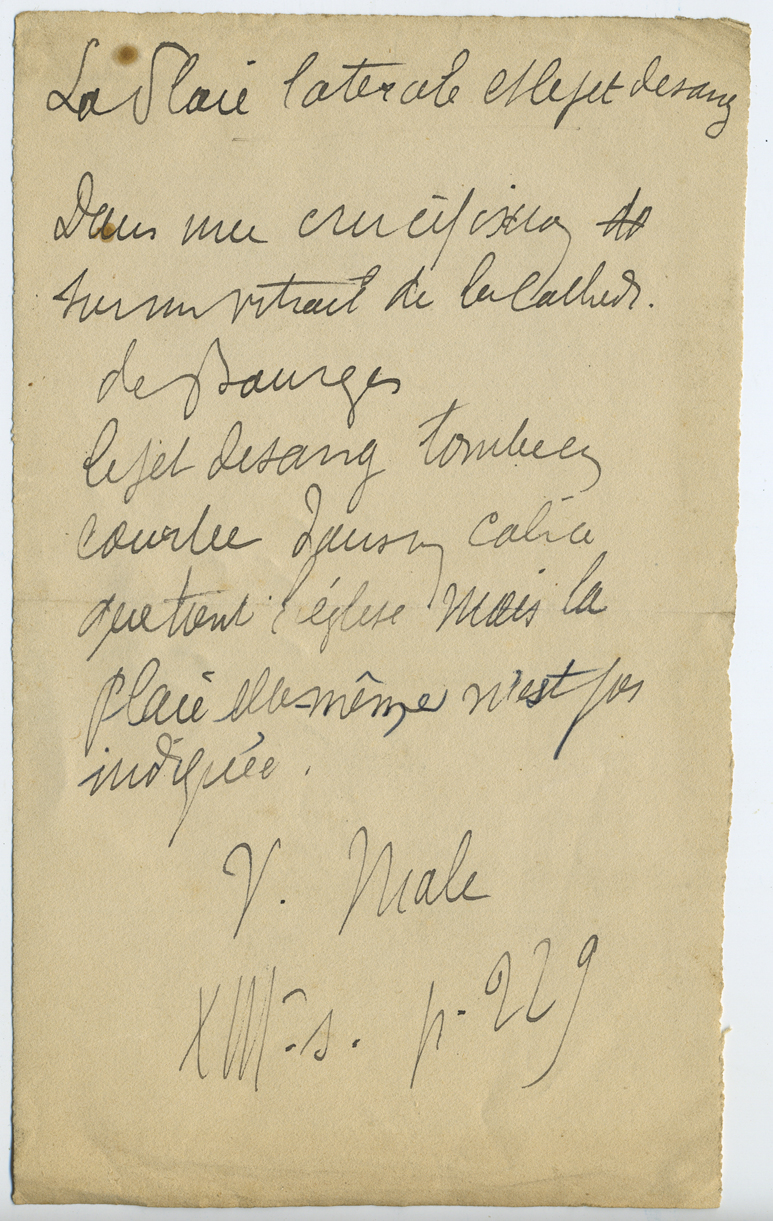 La Plaie laterale et le jet de sang
Dans une crucifixion de
sur un vitrail de la Cathedr.
de Bourges
le jet de sang tombe en
courbe dans un calice
que tient l'église mais la
plaie elle-même n'est pas
indiquée.
V. Male
XIIIe s. p. 229